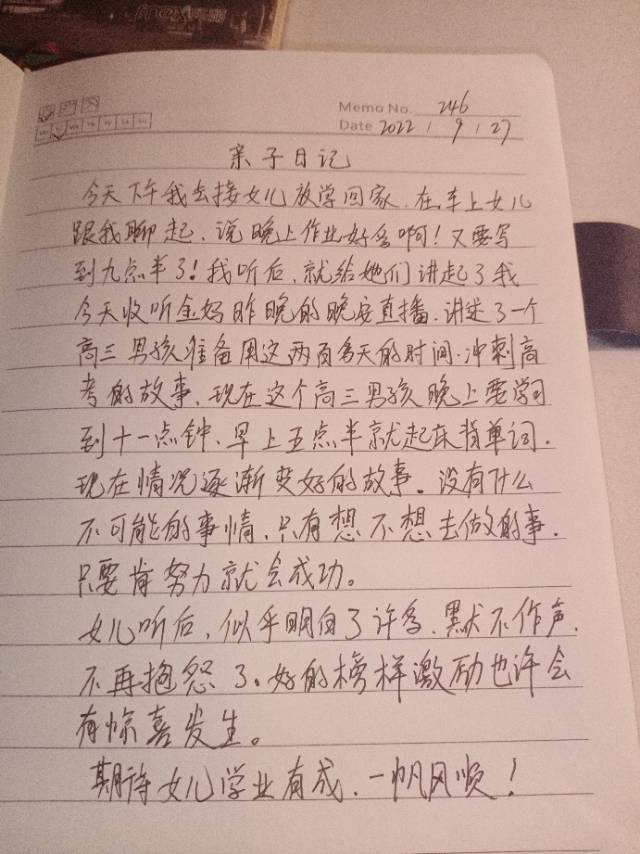 Memo No. 246
Date 2022 / 9 / 27
亲子日记
今天下午我去接女儿放学回家.在车上女儿
跟我聊起.说晚上作业好多啊!又要写
到九点半了!我听后.就给她们讲起了我
今天收听金妈昨晚的晚安直播.讲述了一个
高三男孩准备用这两百多天的时间.冲刺高
考的故事.现在这个高三男孩晚上要学习
到十一点钟.早上五点半就起床背单词.
现在情况逐渐变好的故事。没有什么
不可能的事情.只有想不想去做的事.
只要肯努力就会成功。
女儿听后.似乎明白了许多.默不作声.
不再抱怨了。好的榜样激励也许会
有惊喜发生。
期待女儿学业有成.一帆风顺!